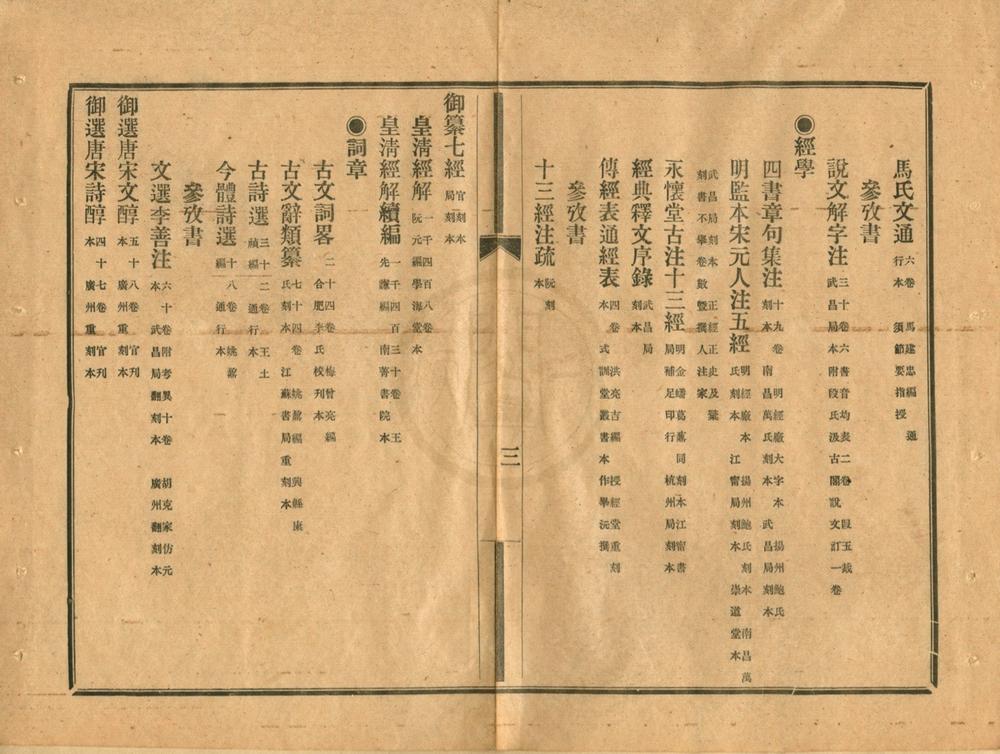 馬氏文通 六卷 馬建忠編 通行本 須節要指授
參攷書
說文解字注 三十卷六書音均表二卷 段玉裁 武昌局本附段氏汲古閣說文訂一卷
◉經學
四書章句集注 十九卷 明經廠大字本 揚州鮑氏刻本 南昌萬氏刻本 武昌局刻本
明監本宋元人注五經 明經廠本 揚州鮑氏刻本 南昌萬氏刻本 江甯局刻本 崇道堂本
武昌局刻本 正經正史及彙刻書不舉卷數暨撰人注家
永懷堂古注十三經 明金蟠葛鼒同刻本 江甯書局補足印行 杭州局刻本
經典釋文序錄 武昌局刻本
傳經表通經表 四卷 洪亮吉編 授經堂重刻本 式訓堂叢書本作畢沅撰
參攷書
十三經注疏 阮刻本
三
御纂七經 官刻本 局刻本
皇清經解 一千四百八卷 阮元編 學海堂本
皇清經解續編 一千四百三十卷 王先謙編 南菁書院本
◉詞章
古文詞畧 二十四卷 梅曾亮編 合肥李氏校刊本
古文辭類纂 七十四卷 姚鼐編 興縣康氏刻本 江蘇書局重刻本
古詩選 三十二卷 王士禎編 通行本
今體詩選 十八卷 姚鼐編 通行本
參攷書
文選李善注 六十卷附考異十卷 胡克家仿元本 武昌局翻刻本 廣州翻刻本
御選唐宋文醇 五十八卷 官刊本 廣州重刻本
御選唐宋詩醇 四十七卷 官刊本 廣州重刻本